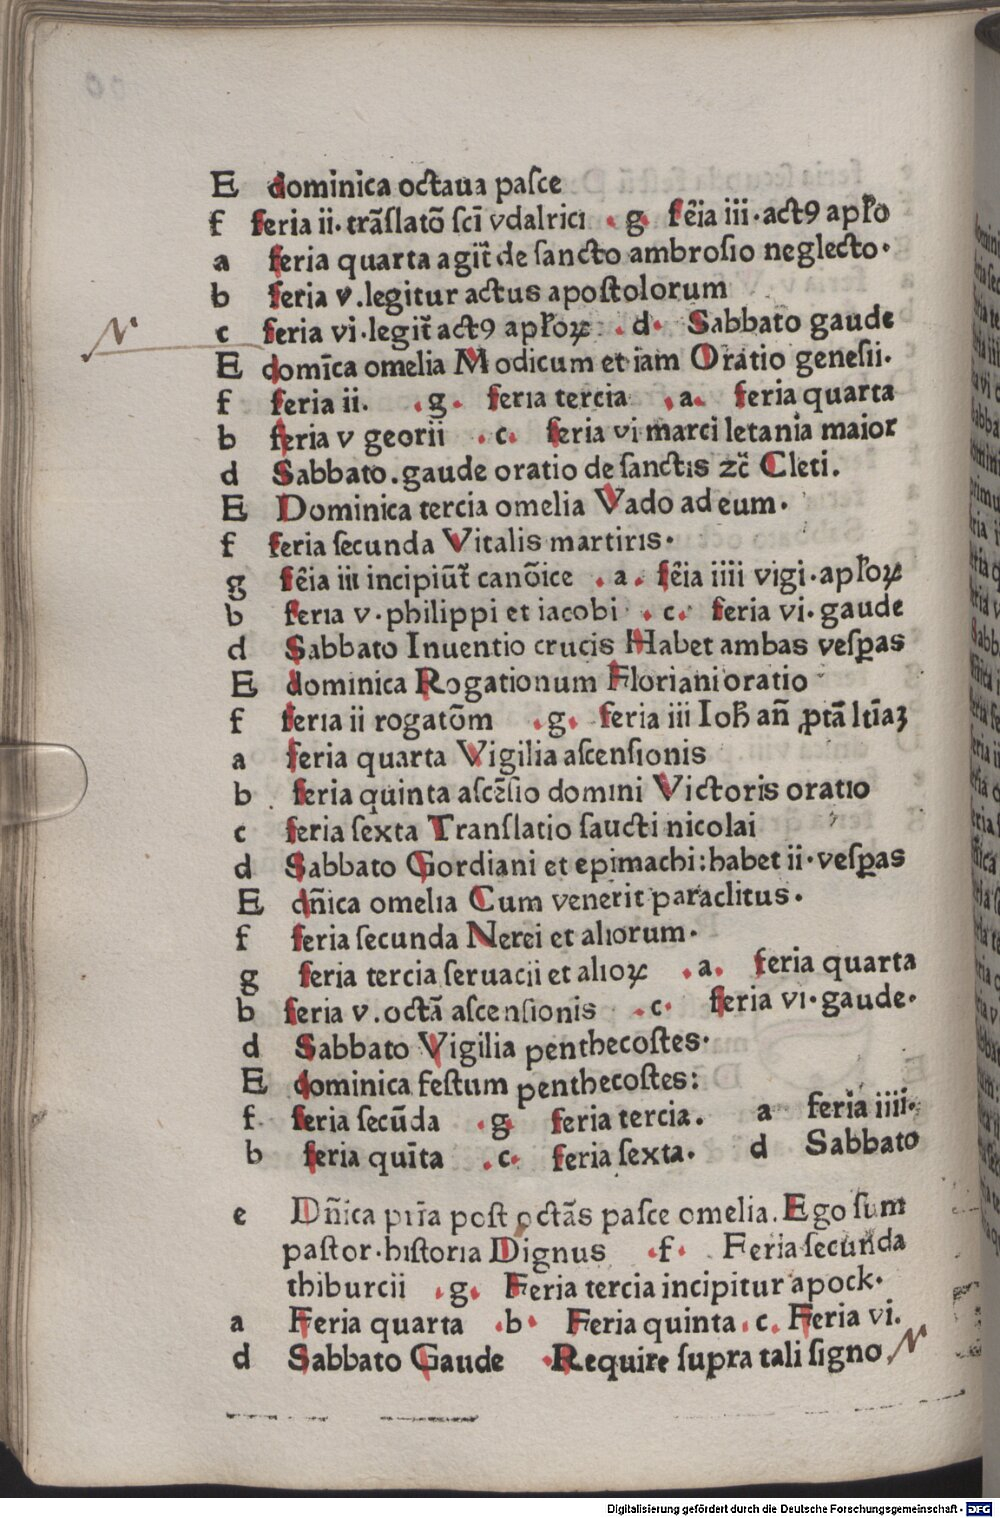 E dominica octaua pasce
f feria ii. trãslatõ scĩ vdalrici . g. fẽia iii. act9 apl'o
a feria quarta agit̃ de sancto ambrosio neglecto.
b feria v. legitur actus apostolorum
N
c feria vi. legit̃ act9 apl'oꝝ . d. Sabbato gaude
E domĩca omelia Modicum et iam Oratio genesii.
f feria ii. .g. feria tercia .a. feria quarta
b feria v georii .c. feria vi marci letania maior
d Sabbato. gaude oratio de sanctis zc̃ Cleti.
E Dominica tercia omelia Vado ad eum.
f feria secunda Vitalis martiris.
g fẽia iii incipiũt̃ canõice .a. fẽia iiii vigi. apl'oꝝ
b feria v. philippi et iacobi .c. feria vi. gaude
d Sabbato Inuentio crucis Habet ambas vesꝑas
E dominica Rogationum Floriani oratio
f feria ii rogatõm .g. feria iii Ioh̃ añ ꝓtã ltĩaꝫ
a feria quarta Vigilia ascensionis
b feria quinta ascẽsio domini Victoris oratio
c feria sexta Translatio saucti nicolai
d Sabbato Gordiani et epimachi: habet ii. vesꝑas
E dñica omelia Cum venerit paraclitus.
f feria secunda Nerei et aliorum.
g feria tercia seruacii et alioꝝ .a. feria quarta
b feria v. octã ascensionis .c. feria vi. gaude.
d Sabbato Vigilia penthecostes.
E dominica festum penthecostes:
f feria secũda .g. feria tercia. a feria iiii.
b feria quĩta .c. feria sexta. d Sabbato
e Dñica prĩa post octãs pasce omelia. Ego sum
pastor. historia Dignus .f. Feria secunda
thiburcii .g. Feria tercia incipitur apock.
a Feria quarta .b. Feria quinta. c. Feria vi.
d Sabbato Gaude .Require supra tali signo N
Digitalisierung gefördert durch die Deutsche Forschungsgemeinschaft - DFG